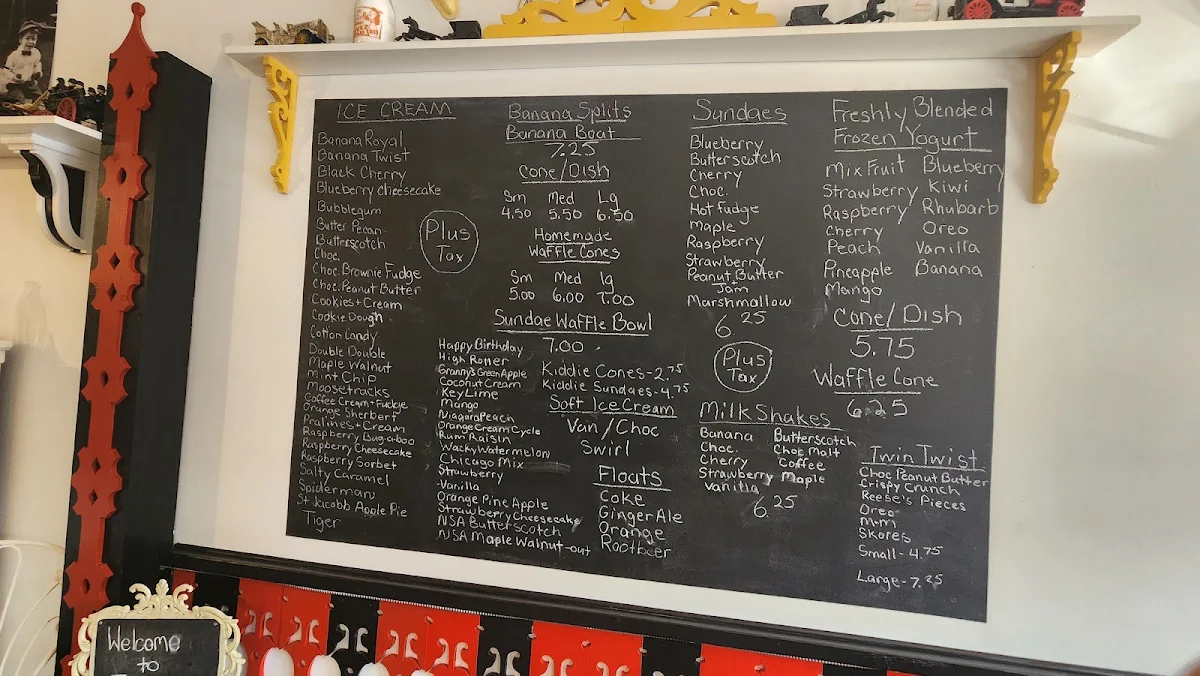 ICE CREAM
Banana Royal
Banana Twist
Black Cherry
Blueberry cheesecake
Bubblegum
Butter Pecan
Butterscotch
Choc.
Choc. Brownie Fudge
Choc. Peanut Butter
Cookies + Cream
Cookie Dough
Cotton Candy
Double Double
Maple Walnut
Mint Chip
Moosetracks
Coffee Cream + Fudge
Orange Sherbert
Pralines + Cream
Raspberry Bug-a-boo
Raspberry Cheesecake
Raspberry Sorbet
Salty Caramel
Spiderman
St Jacobb Apple Pie
Tiger
Plus
Tax
Happy Birthday
High Roller
Granny's Green Apple
Coconut Cream
Key Lime
Mango
Niagara Peach
Orange Cream Cycle
Rum Raisin
Wacky Watermelon
Chicago Mix
Strawberry
Vanilla
Orange Pine Apple
Strawberry Cheesecake
NSA Butterscotch
NSA Maple Walnut-out
Banana Splits
Banana Boat
7.25
Cone/Dish
Sm Med Lg
4.50 5.50 6.50
Homemade
Waffle Cones
Sm Med lg
5.00 6.00 7.00
Sundae Waffle Bowl
7.00
Kiddie Cones-2.75
Kiddie Sundaes-4.75
Soft Ice Cream
Van/Choc
Swirl
Floats
Coke
Ginger Ale
Orange
Rootbeer
Sundaes
Blueberry
Butterscotch
Cherry
Choc.
Hot Fudge
Maple
Raspberry
Strawberry
Peanut Butter
Jam
Marshmallow
6.25
Plus
Tax
Milk Shakes
Banana Butterscotch
Choc. Choc Malt
Cherry Coffee
Strawberry Maple
Vanilla
6.25
Freshly Blended
Frozen Yogurt
Mix Fruit Blueberry
Strawberry Kiwi
Raspberry Rhubarb
Cherry Oreo
Peach Vanilla
Pineapple Banana
Mango
Cone/Dish
5.75
Waffle Cone
6.25
Twin Twist
Choc Peanut Butter
Crispy Crunch
Reese's Pieces
Oreo
M+M
Skores
Small-4.75
Large-7.25
Welcome
to